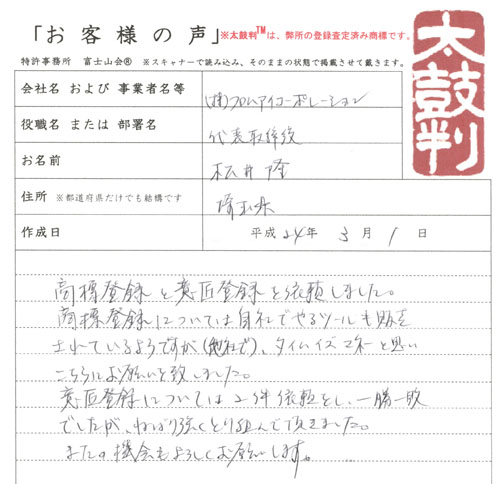 「お客様の声」
※太鼓判™は、弊所の登録査定済み商標です。
太鼓判
特許事務所 富士山会® ※スキャナーで読み込み、そのままの状態で掲載させて戴きます。
会社名 および 事業者名等 (株)フロムアイコーポレーション
役職名 または 部署名 代表取締役
お名前 松井 隆
住所 ※都道府県だけでも結構です 埼玉県
作成日 平成 24年 3月 1日
商標登録と意匠登録を依頼しました。
商標登録については自社でやるツールも販売
されているようですが(他社で)、タイムイズマネーと思い
こちらにお願いを致しました。
意匠登録については2件依頼をし、一勝一敗
でしたが、ねばり強くとり組んで頂きました。
またの機会もよろしくお願いします。